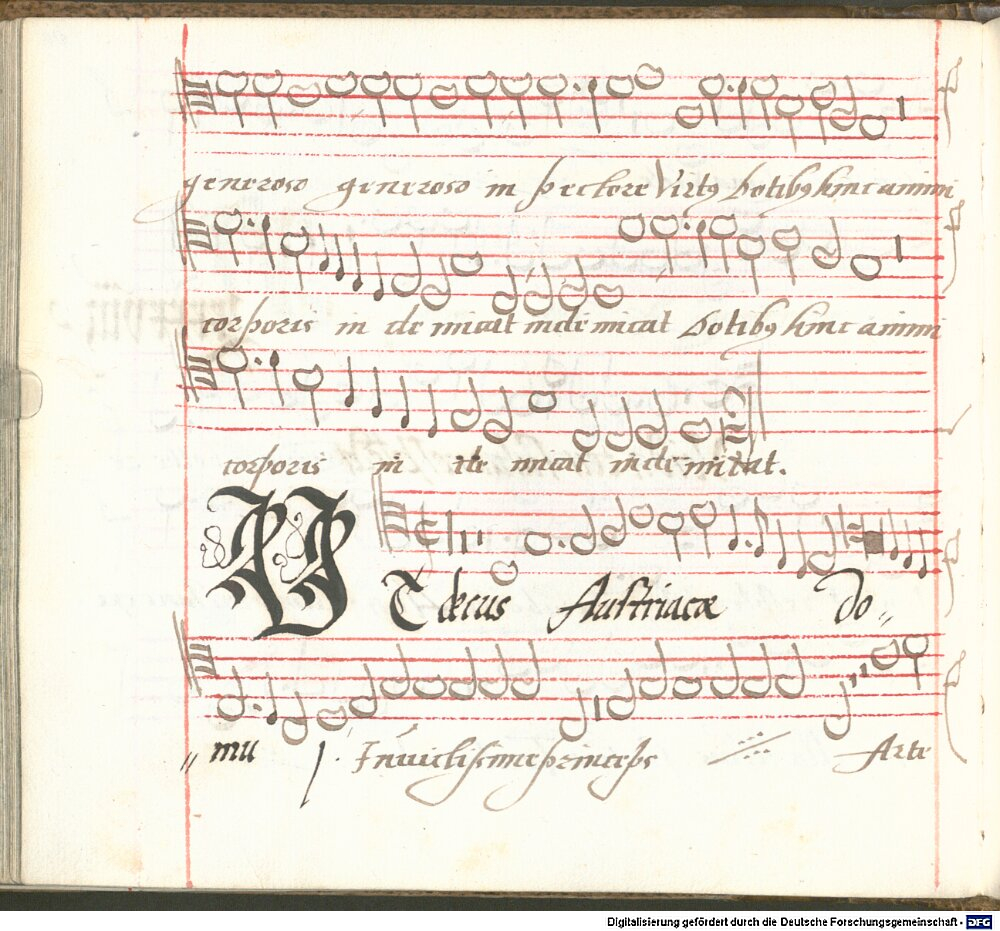 generoso generoso in pectore Virtꝰ Dotibꝰ hinc animi
corporis in de micat inde micat Dotibꝰ hinc animi
corporis in de micat inde mitat.
VT decus Austriacæ do,,
,, mu Invictissime princeps Arte
Digitalisierung gefördert durch die Deutsche Forschungsgemeinschaft - DFG